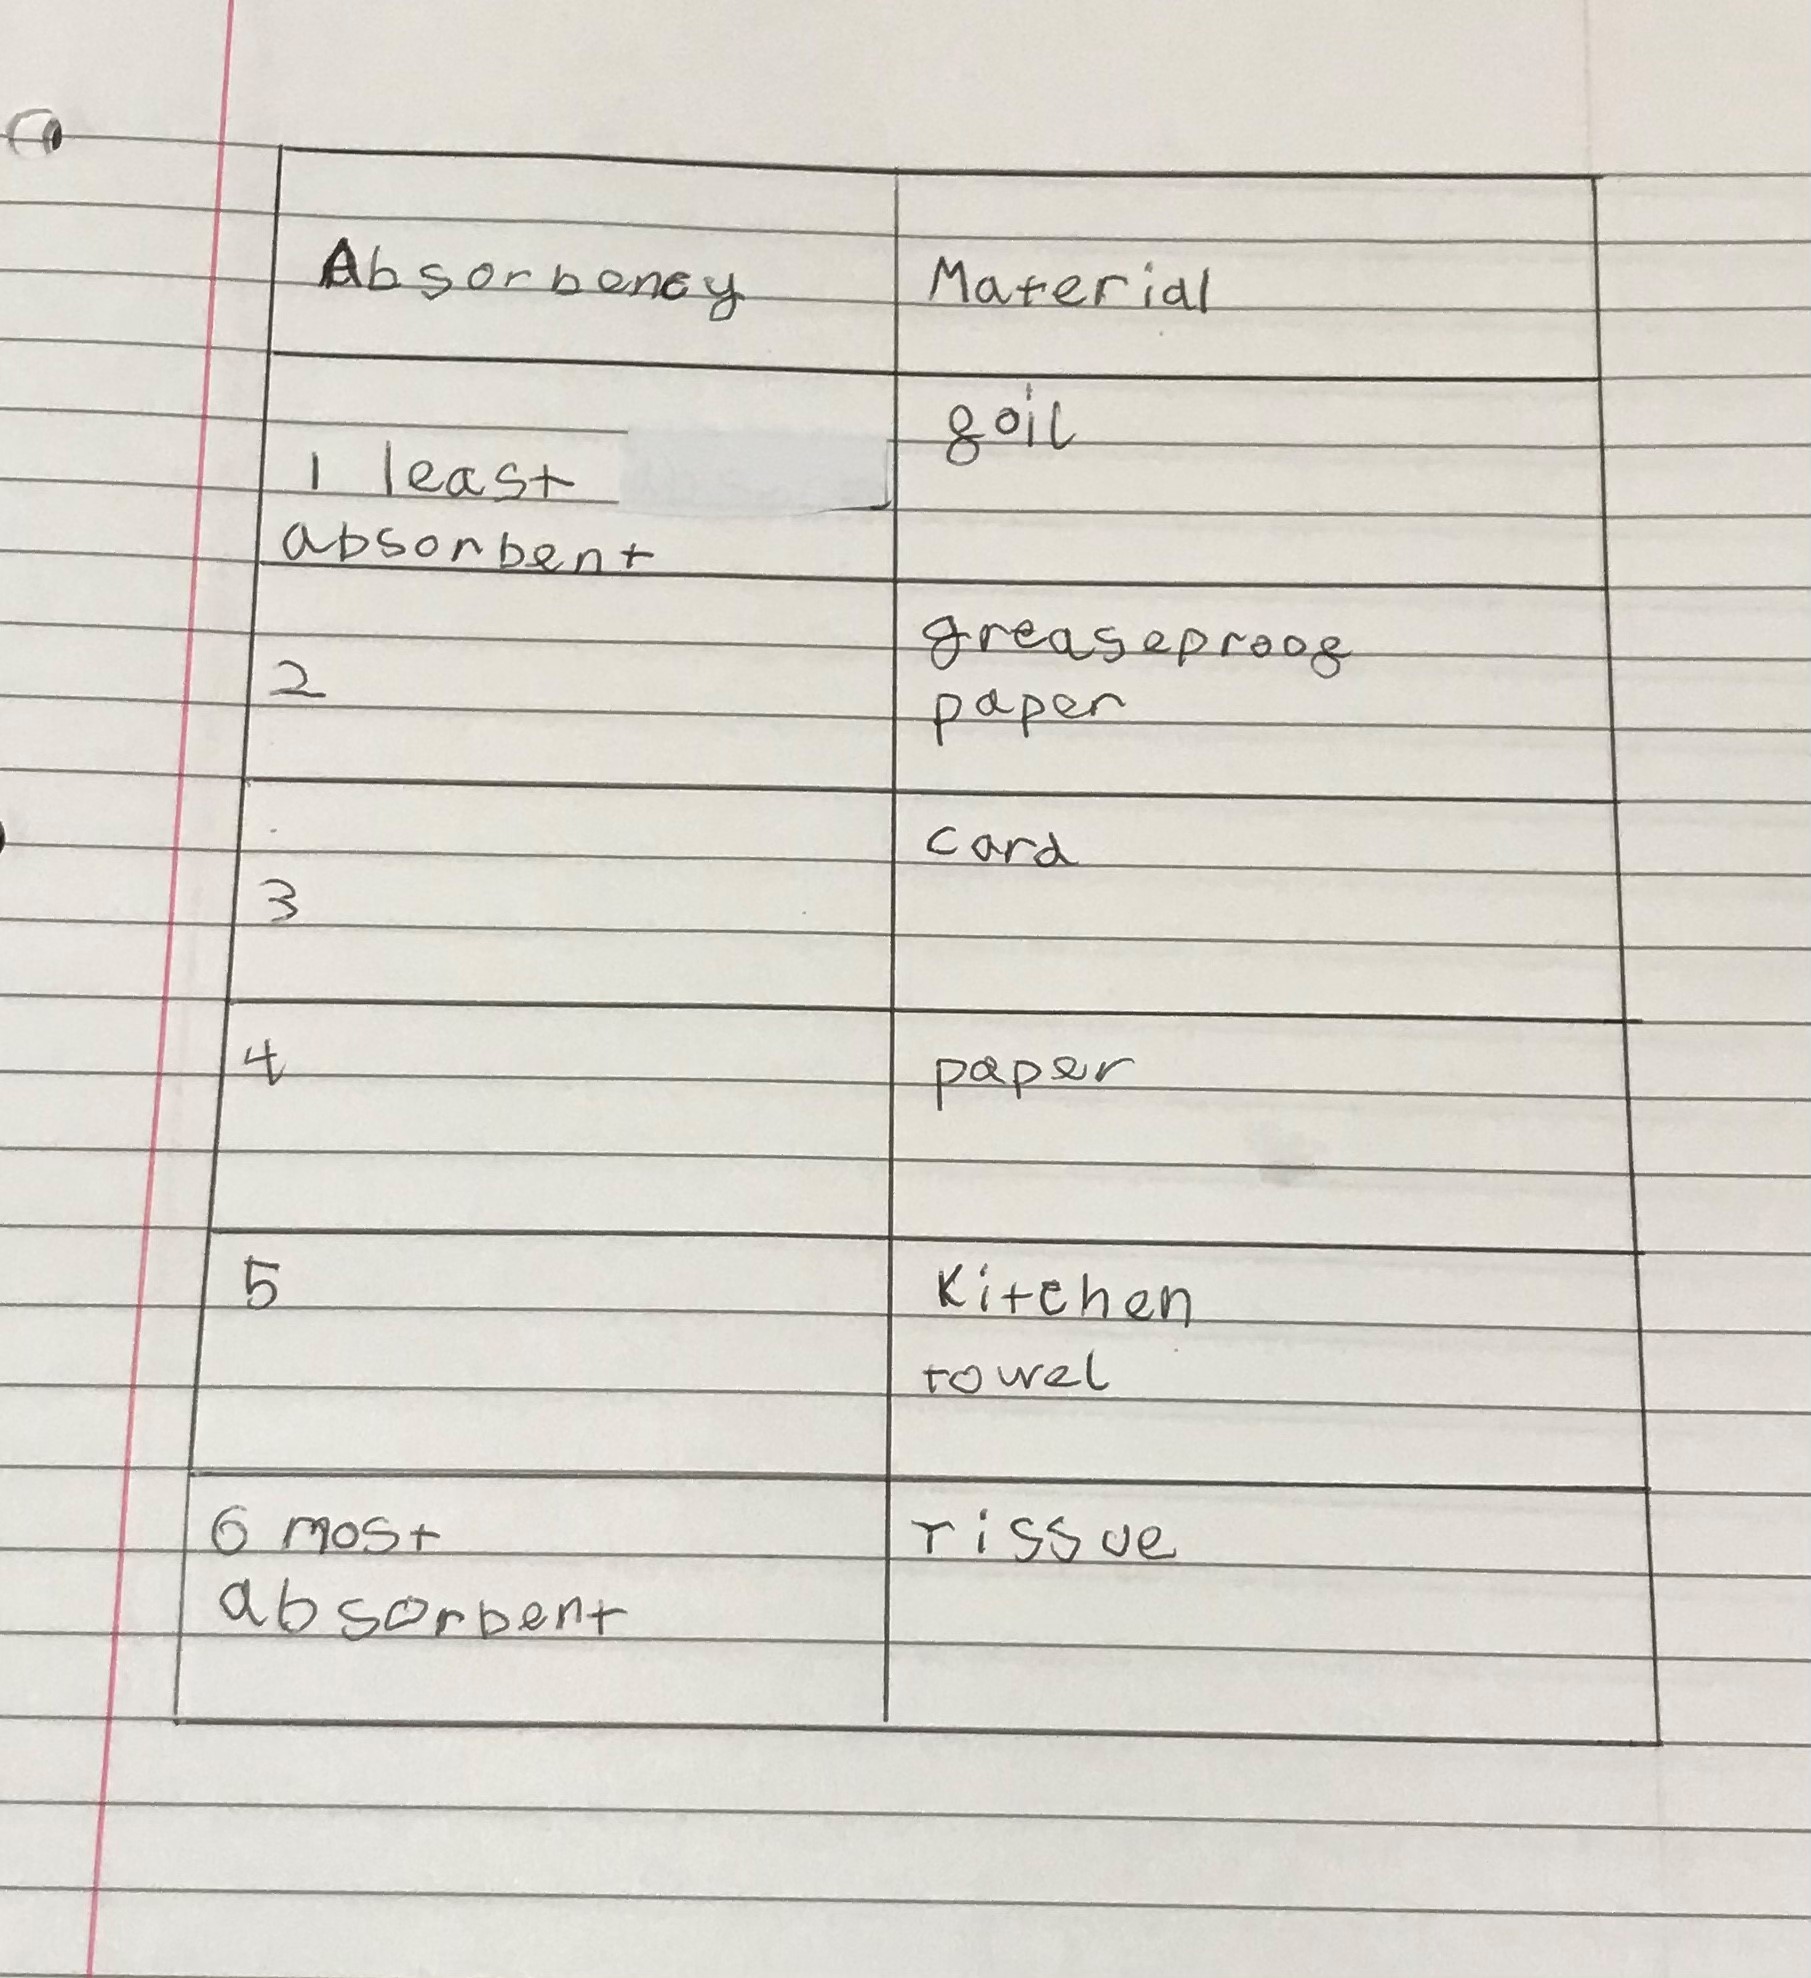 Absorbency Material
1 least foil
absorbent
2 greaseproof
paper
3 card
4 paper
5 Kitchen
towel
6 most Tissue
absorbent